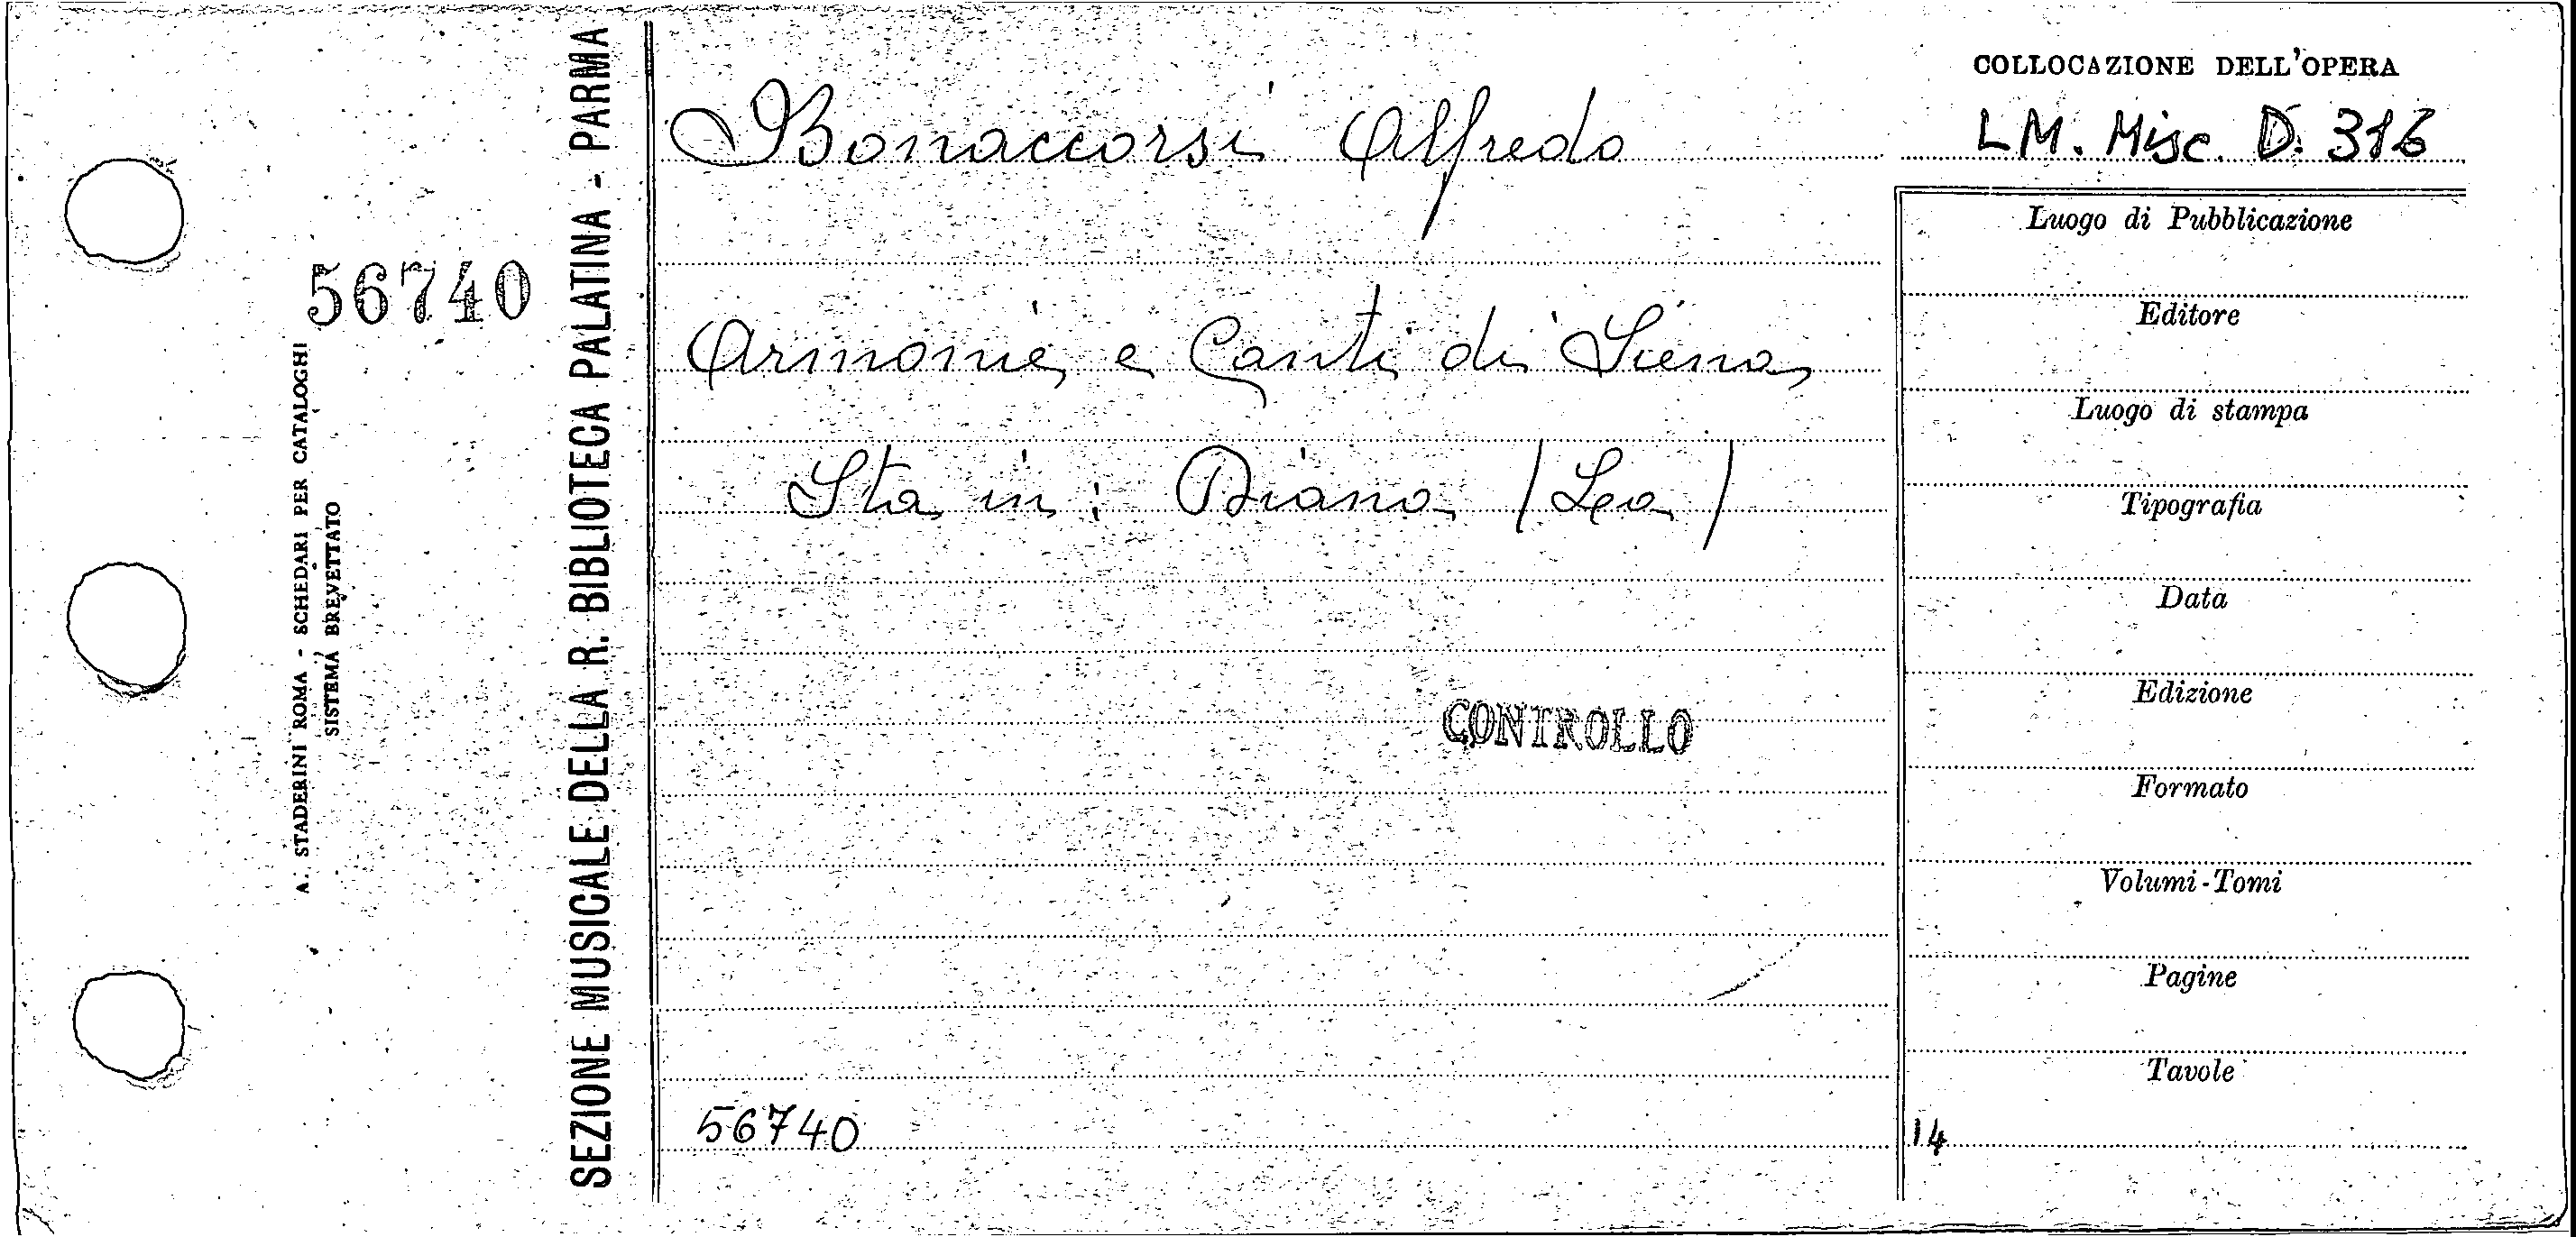 COLLOCAZIONE DELL'OPERA
Bonaccorsi Alfredo
LM. Misc. D. 316
Luogo di Pubblicazione
56740
Editore
Armonie e Canti di Siena
Luogo di stampa
Sta in: Diana (Lea)
Tipografia
Data
Edizione
CONTROLLO
Formato
Volumi-Tomi
Pagine
Tavole
56740
14
SEZIONE MUSICALE DELLA R. BIBLIOTECA PALATINA - PARMA
A. STADERINI ROMA - SCHEDARI PER CATALOGHI
SISTEMA BREVETTATO